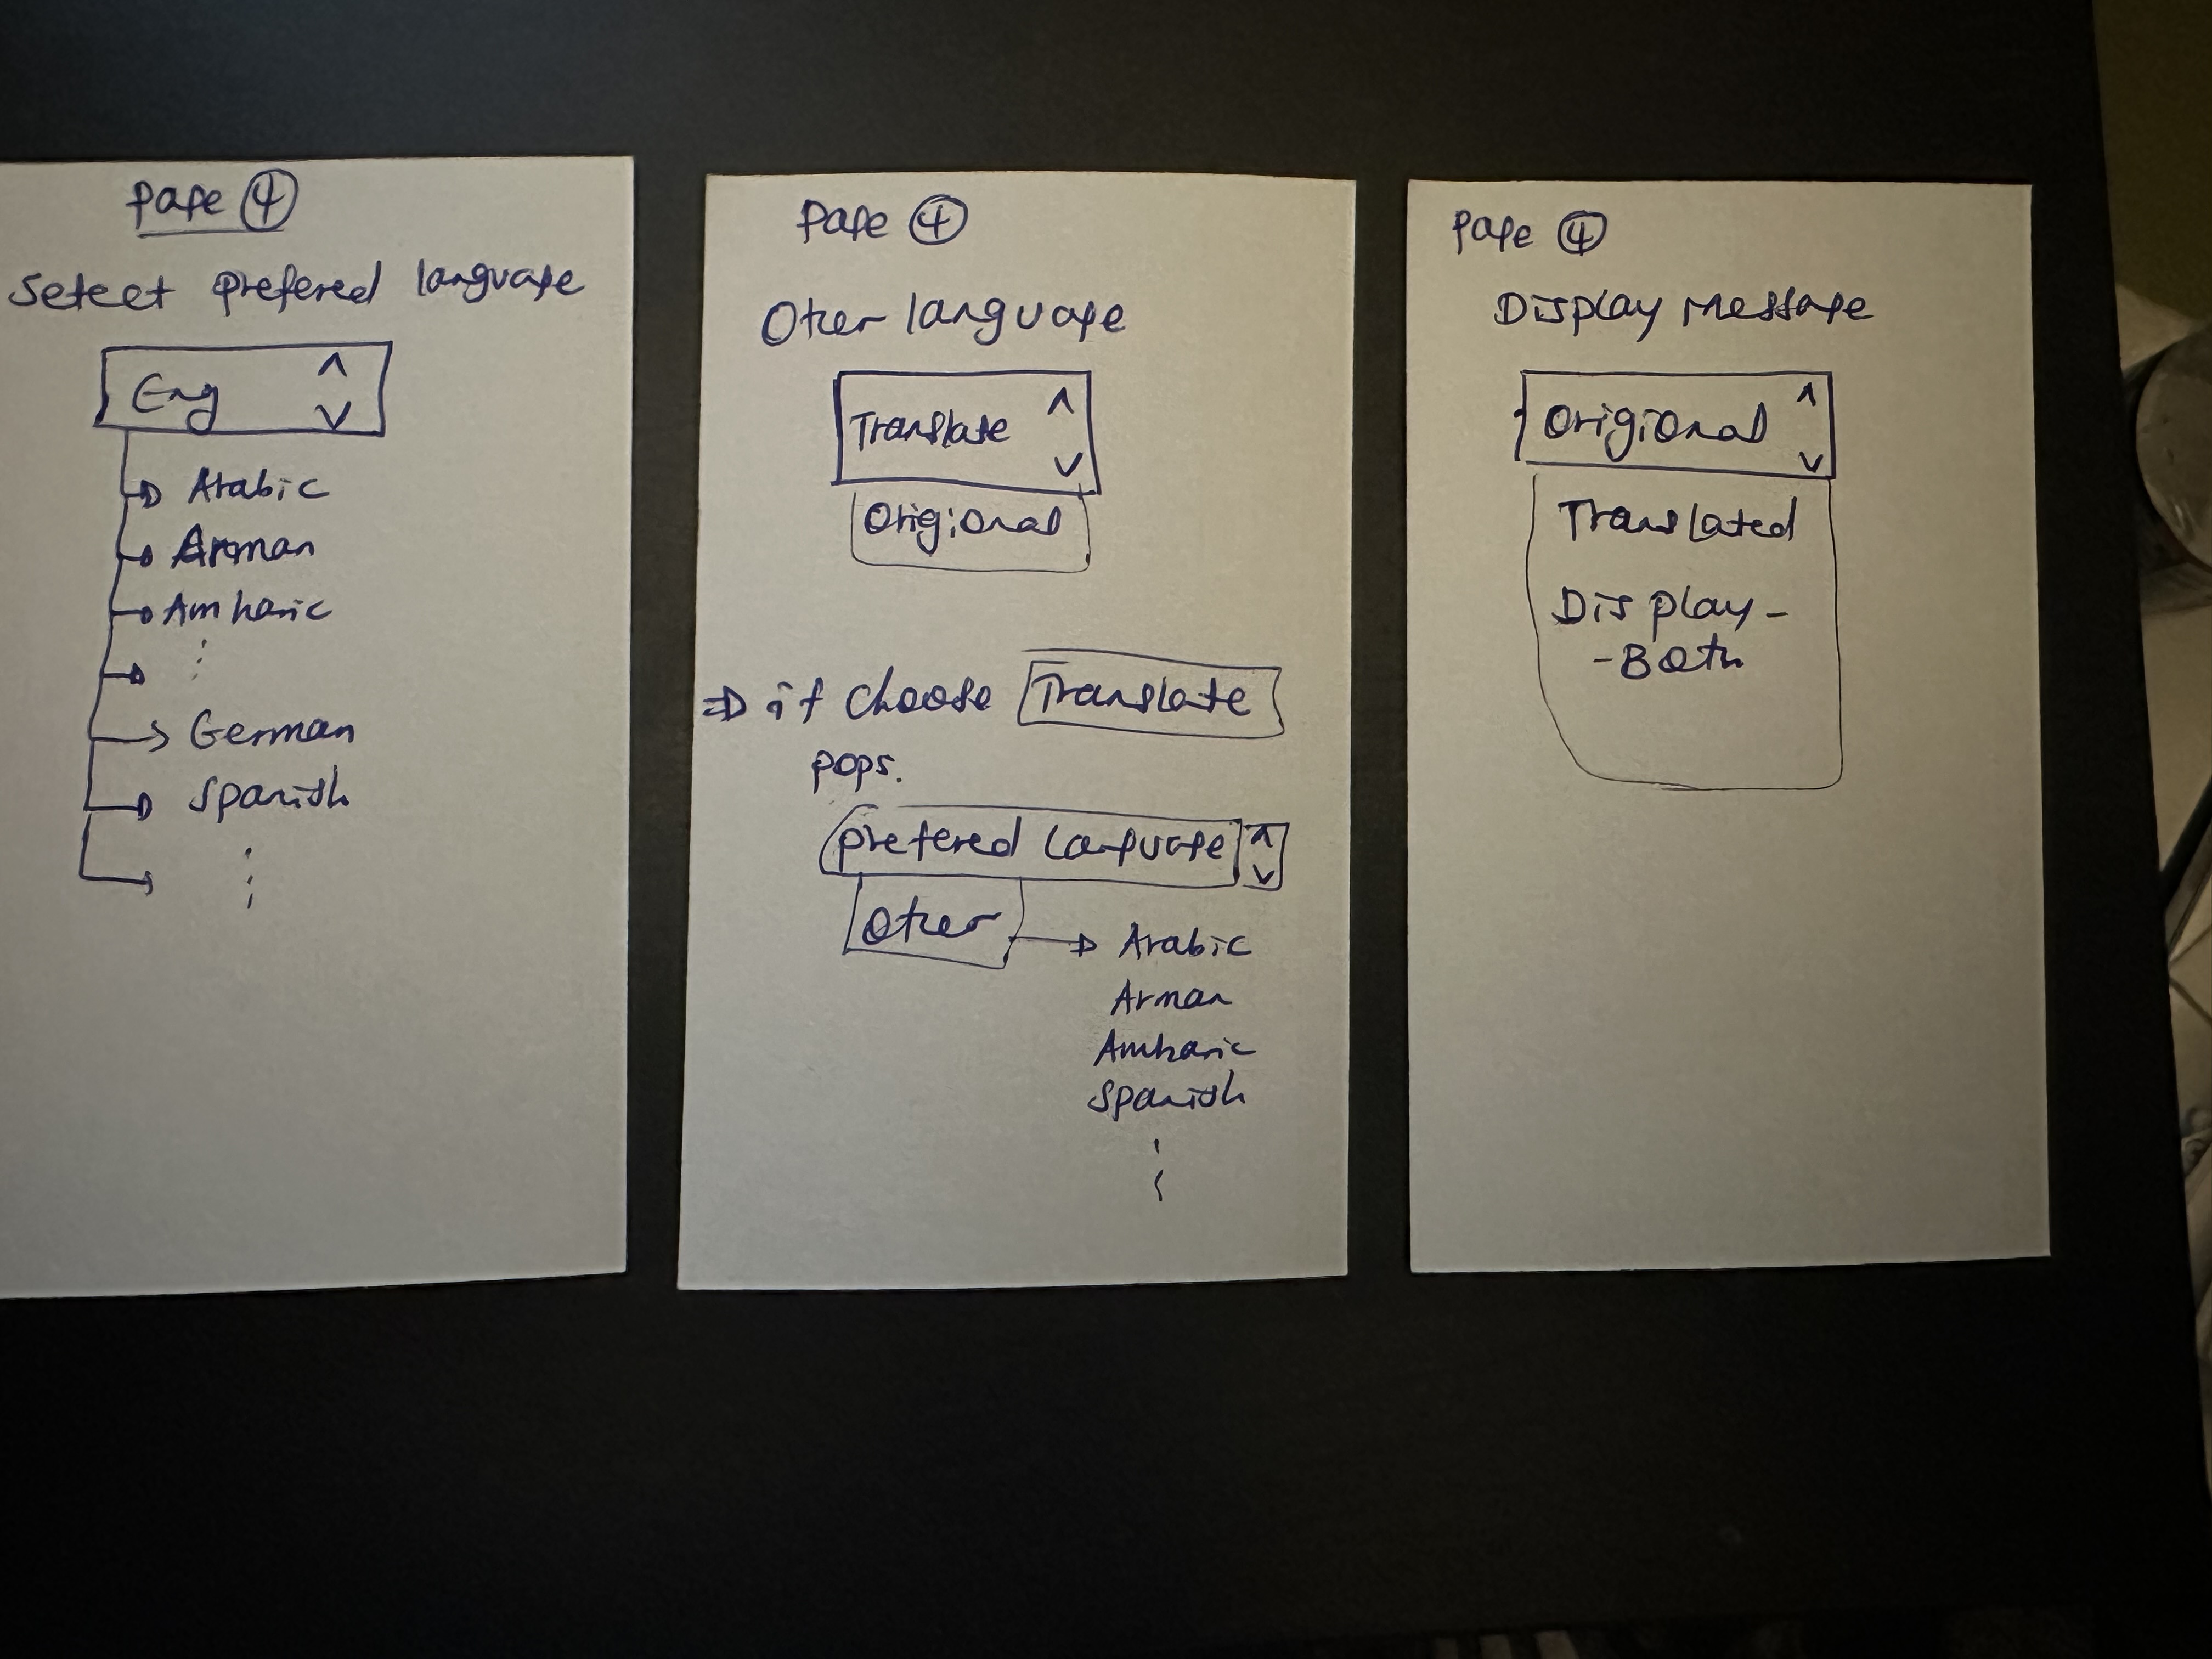 Page 1
Select prefered language
Eng
Arabic
Arman
Amharic
German
Spanish
Page 1
Other language
Translate
Origional
if choose Translate
pops.
prefered language
Other
Arabic
Arman
Amharic
Spanish
Page 1
Display message
Origional
Translated
Display -
- Both